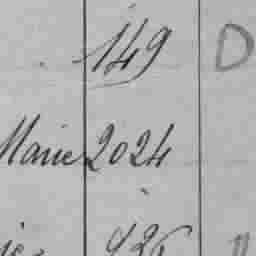 149 D
Marie 2024
926